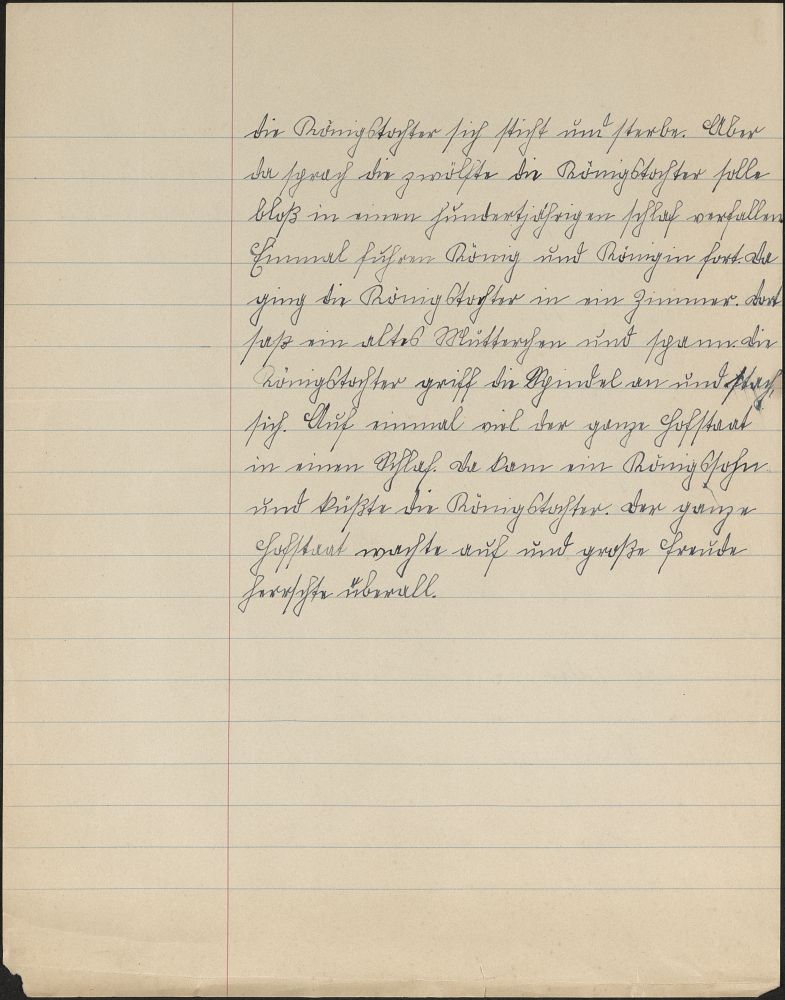 die Königstochter sich sticht und sterbe. Aber
da sprach die zwölfte die Königstochter solle
bloß in einen hundertjährigen schlaf verfallen
Einmal fuhren König und Königin fort. Da
ging die Königstochter in ein Zimmer. Dort
saß ein altes Mütterchen und spann. Die
Königstochter griff die Spindel an und stach
sich. Auf einmal viel der ganze Hofstaat
in einen Schlaf. Da kam ein Königssohn
und küßte die Königstochter. Der ganze
Hofstaat wachte auf und große Freude
herrschte überall.